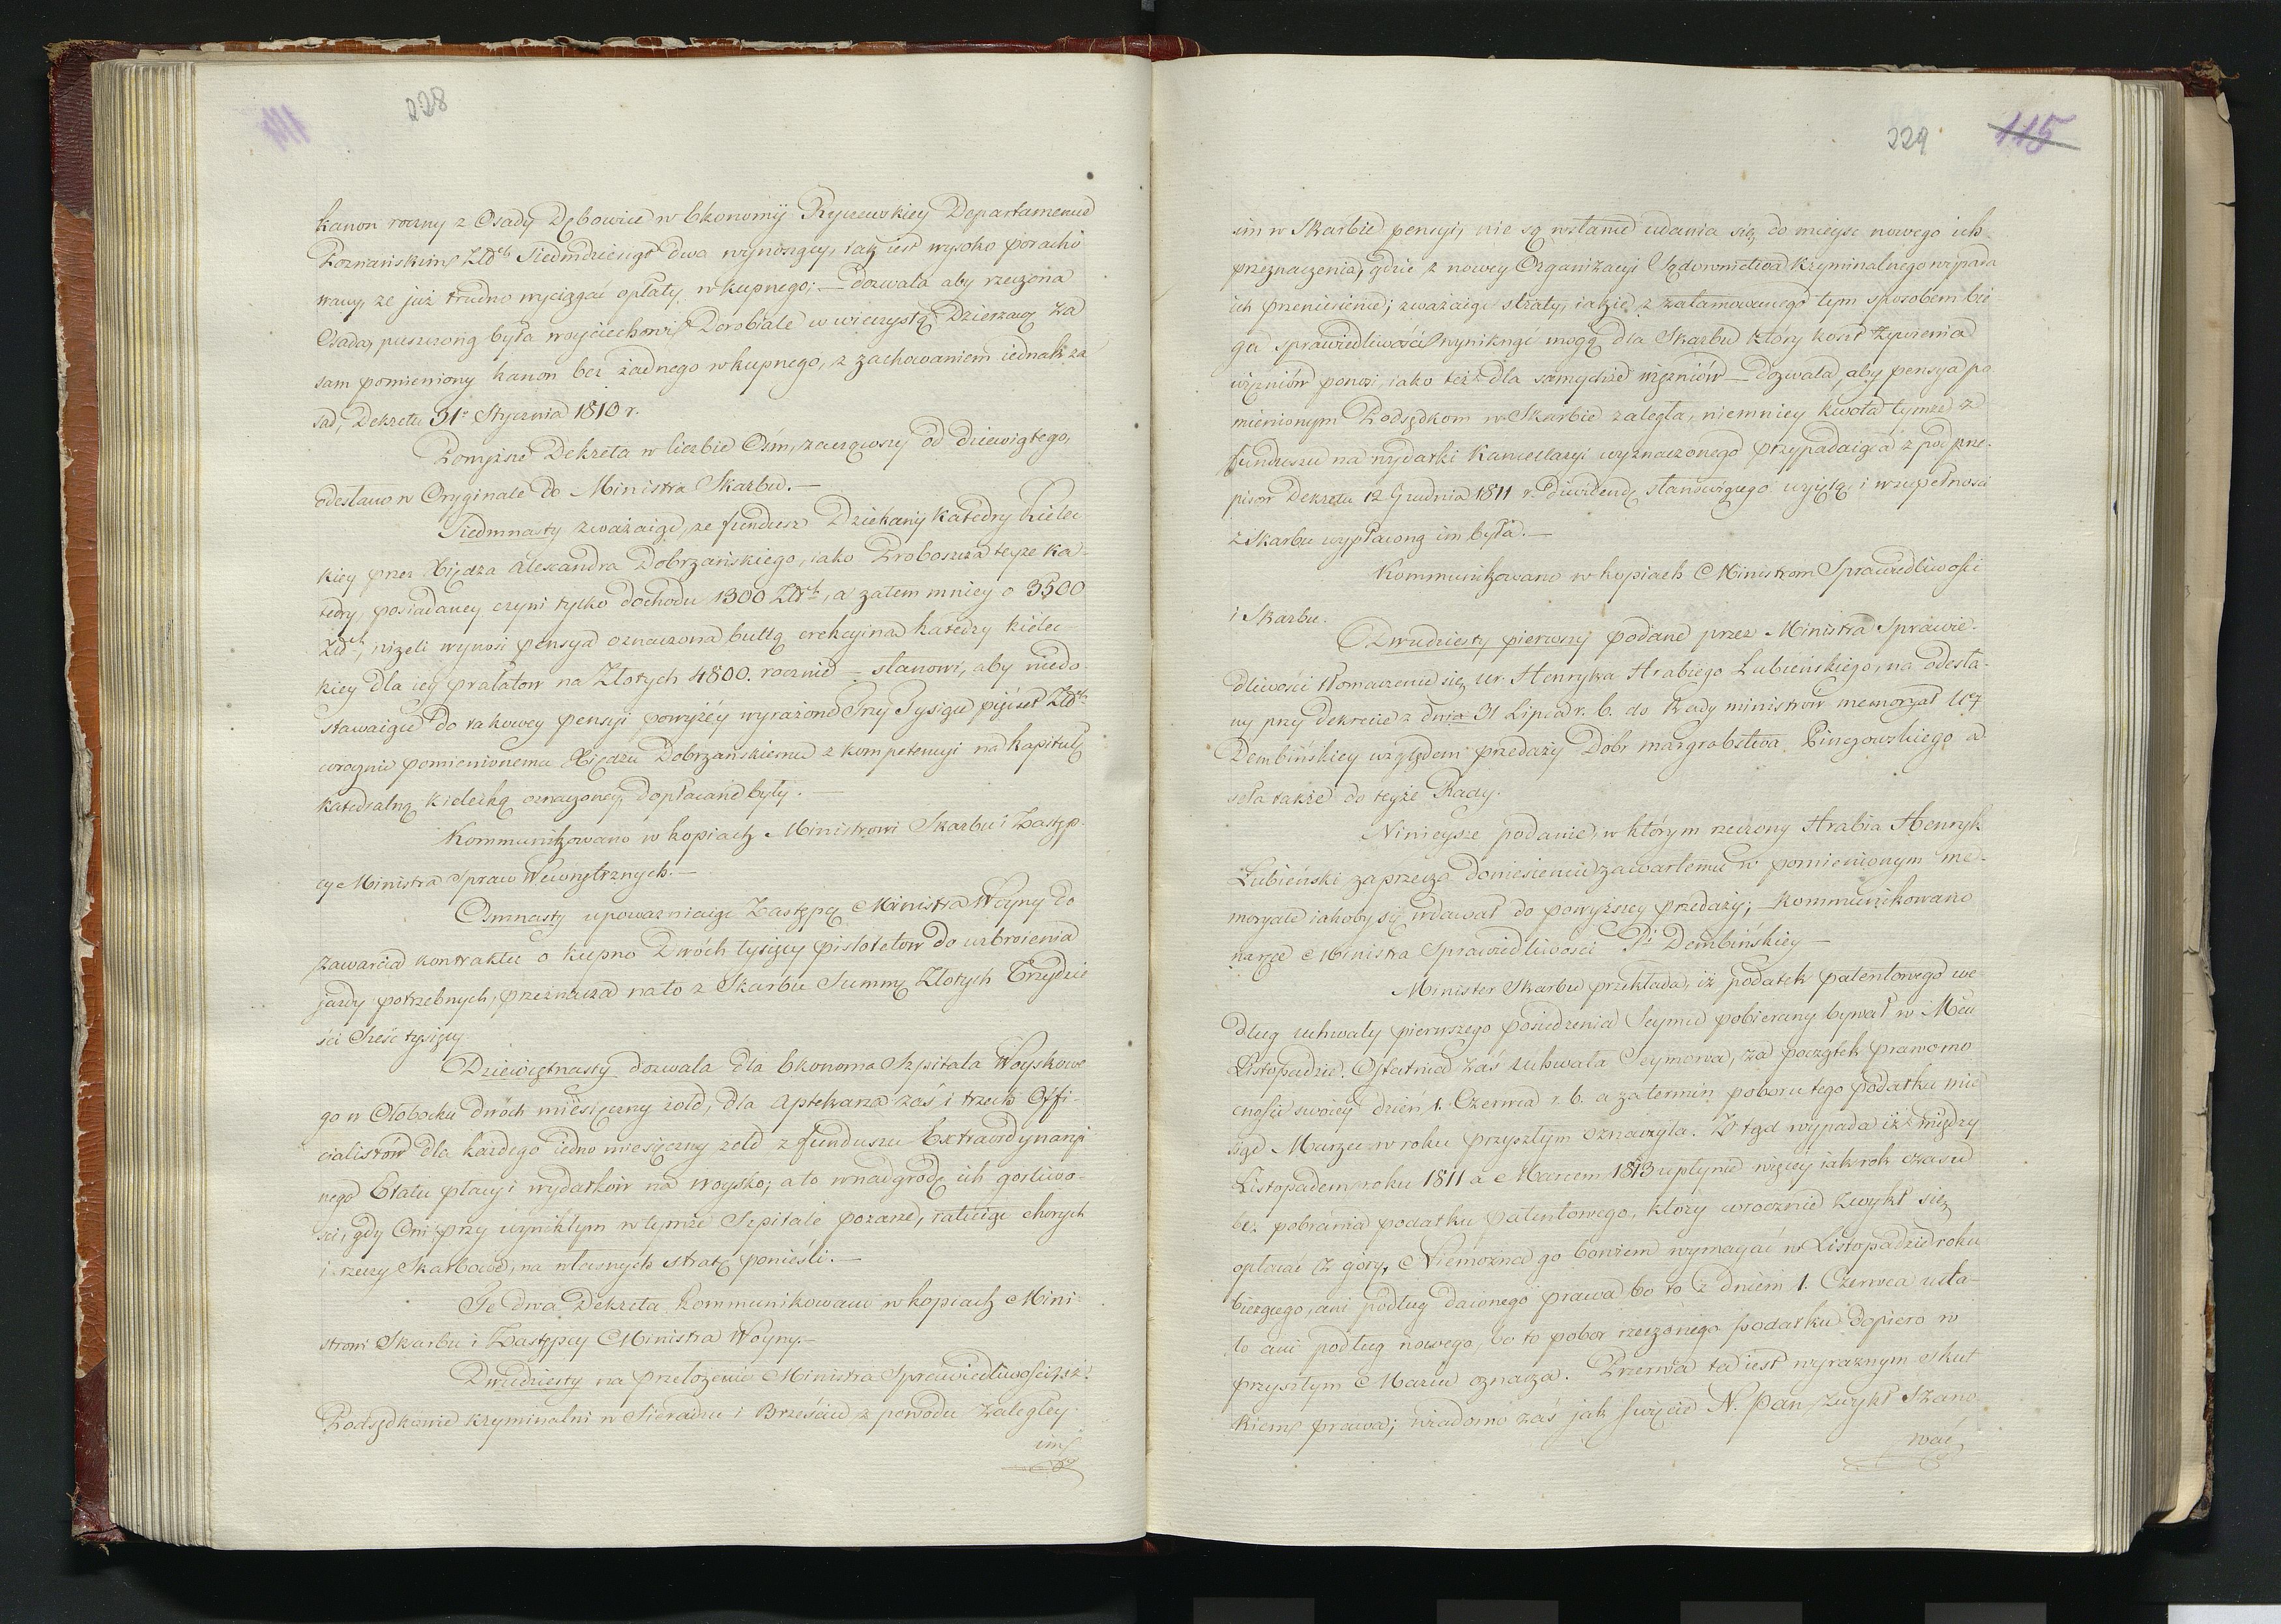 228
kanon roczny z Osady Dębowice w Ekonomij Ryczewskiey Departamencie
Poznańskim Złłch Siedmdziesiąt dwa wynoszący, tak iest wysoko poracho
wany, że już trudno wyciągać opłaty wkupnego; — dozwala aby rzeczona
Osada, puszczoną była Woyciechowi Dorobiale w wieczystą Dzierżawę za
sam pomieniony kanon bez żadnego wkupnego, z zachowaniem iednak za
sad, Dekretu 31o Stycznia 1810 r.
Powyższe Dekreta w liczbie Ośm, zacząwszy od dziewiątego,
odesłano w Oryginale do Ministra Skarbu. —
Siedmnasty zważaiąc, że fundusz Dziekanij Katedry Kielec
kiey przez Xiędza Alexandra Dobrzańskiego, iako Proboszcza teyże Ka-
tedry, posiadaney czyni tylko dochodu 1300 Złłch, a zatem mniey o 3500
Złłch, niżeli wynosi pensya oznaczona bullą erekcyiną katedry kielec-
kiey dla iey prałatow na Złotych 4800. rocznie — stanowi, aby niedo-
stawaiące do takowey pensyi powyżéy wyrażone Trzy Tysiące pięćset Złłch
corocznie pomienionemu Xiędzu Dobrzańskiemu z kompetencyi na kapitułę
katedralną kielecką oznaczoney, dopłacane były. —
Kommunikowano w kopiach Ministrowi Skarbu i Zastęp-
cy Ministra Spraw Wewnętrznych. —
Osmnasty upoważniaiąc Zastępcę Ministra Woyny do
zawarcia kontraktu o kupno Dwóch tysięcy pistoletow do uzbroienia
jazdy potrzebnych, przeznacza na to z Skarbu Summę Złotych Trzydzie
ści Sześć tysięcy
Dziewiętnasty dozwala dla Ekonoma Szpitala Woyskowe
go w Ołoboku dwóch miesięczny żołd, dla Aptekarza zaś i trzech Offi-
cialistów dla każdego iedno miesięczny żołd z funduszu Extraordynaryi
nego Etatu płacy i wydatków na woysko; a to w nadgrodę ich gorliwo-
ści, gdy Oni przy wynikłym w tymże Szpitale pożarze, ratuiąc chorych
i rzeczy Skarbowe, na własnych stratę ponieśli. —
Te dwa Dekreta kommunikowano w kopiach Mini-
strowi Skarbu i Zastępcy Ministra Woyny. —
Dwudziesty na przełożenie Ministra Sprawiedliwości, iż
Podsędkowie kryminalni w Sieradzu i Brześciu z powodu zaległey
im
229 115
im w Skarbie pensyi, nie są w stanie udania się do mieysc nowego ich
przeznaczenia, gdzie z nowey Organizacyi Sądownictwa Kryminalnego wypada
ich przeniesienie; zważaiąc straty, iakie z zatamowanego tym sposobem bie
gu sprawiedliwości wyniknąć mogą dla Skarbu który koszt żywienia
więzniów ponosi, iako też dla samychże więzniów — Dozwala, aby pensya po
mienionym Podsędkom w Skarbie zaległa, niemniey kwota tymże z
funduszu na wydatki Kancellaryi wyznaczonego przypadaiąca z pod prze-
pisow Dekretu 12 Grudnia 1811 r. dividendę stanowiącego wyiętą i w zupełności
z Skarbu wypłaconą im była. —
Kommunikowano w kopiach Ministrom Sprawiedliwości
i Skarbu.
Dwudziesty pierwszy podane przez Ministra Sprawie-
dliwości tłomaczenie się Ur. Henryka Hrabiego Lubieńskiego, na odesła-
ny przy dekrecie z dnia 31 Lipca r. b. do Rady ministrów memoryał Ur.
Dembińskiey względem przedaży Dóbr margrabstwa Pinczowskiego od
seła także do teyże Rady.
Ninieysze podanie, w którym rzeczony Hrabia Henryk
Lubieński zaprzecza doniesieniu zawartemu w pomienionym me-
moryale iakoby się wdawał do powyższey przedaży; kommunikowano
na ręce Ministra Sprawiedliwości Pi Dembińskiey —
Minister Skarbu przekłada, iż podatek patentowego we
dług uchwały pierwszego posiedzenia Seymu pobierany bywał w Mcu
Listopadzie. Ostatnia zaś uchwała Seymowa, za początek prawomo
cności swoiey dzień 1. Czerwca r. b. a za termin poboru tego podatku mie
siąc Marzec w roku przyszłym oznaczyła. Ztąd wypada iż między
Listopadem roku 1811 a Marcem 1813 upłynie więcey iak rok czasu
bez pobrania podatku patentowego, który corocznie zwykł się
opłacać z góry, Niemożna go bowiem wymagać w Listopadzie roku
bieżącego, ani podług dawnego prawa bo to z dniem 1. Czerwca usta-
ło ani podług nowego, bo to pobor rzeczonego podatku dopiero w
przyszłym Marcu oznacza. Przerwa ta iest wyraznym skut
kiem prawa; wiadomo zaś jak święcie N. Pan zwykł Szano
wać